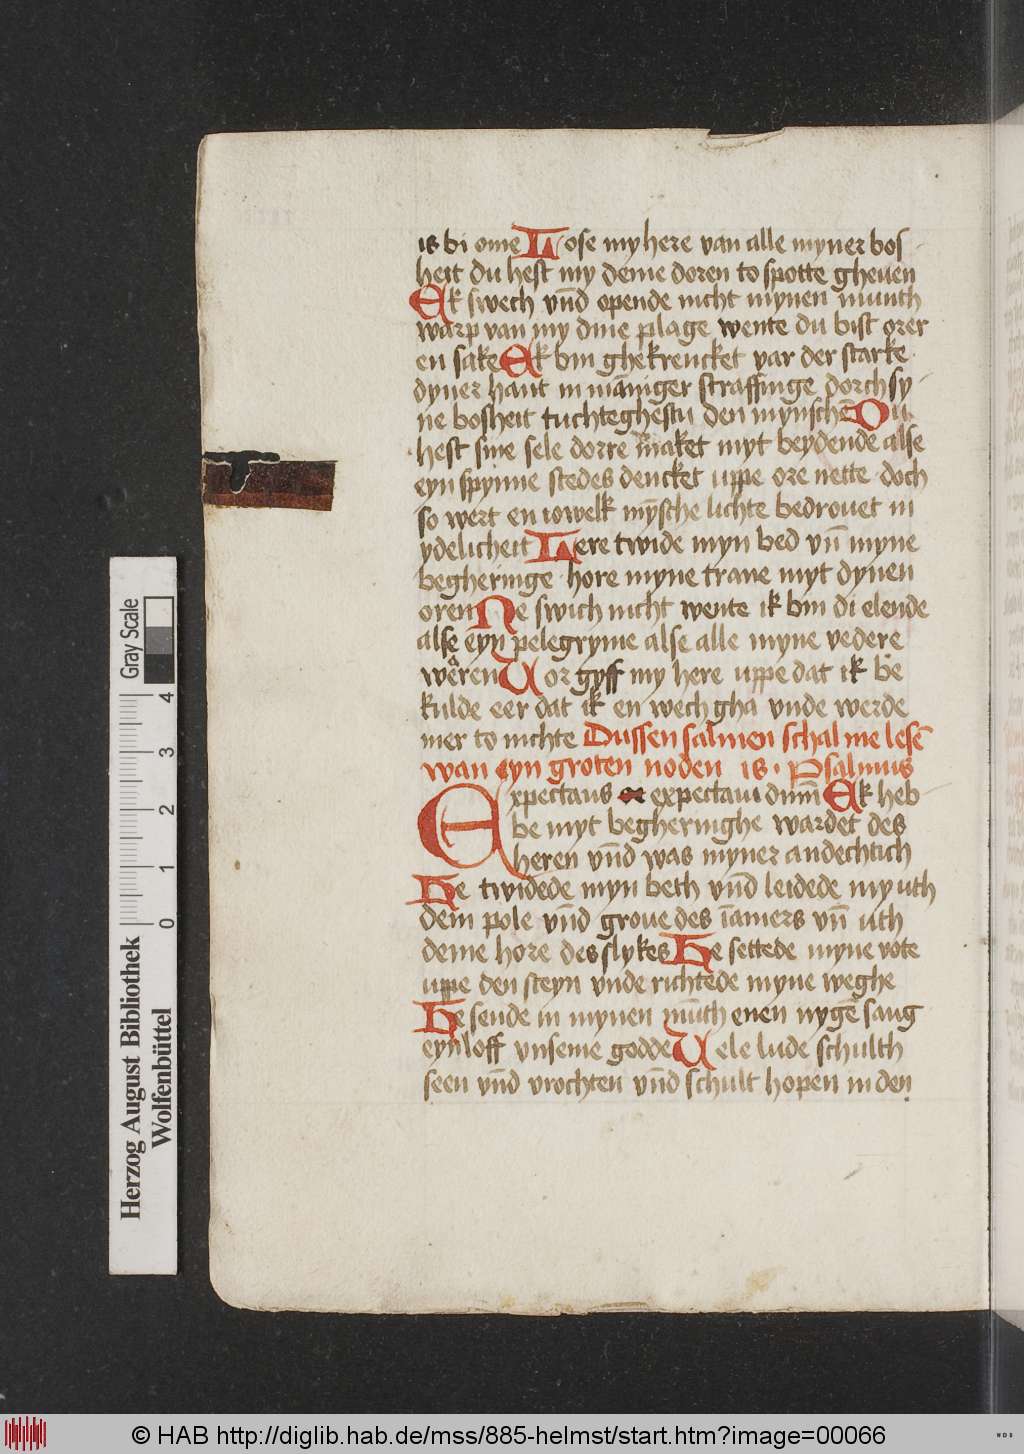 is bi ome Lose my here van alle myner bos
heit du hest my deme doren to spotte gheuen
Ek swech vnd opende nicht mynen munth
warp van my dine plage wente du bist orer
en sake Ek bin ghekrencket van der starke
dyner hant in māniger straffinge dorch sy
ne bosheit tuchteghestu den mynschē Du
hest sine sele dorre maket myt beydende alse
eyn spynne stedes dencket uppe ore nette doch
so wert en iowelk mȳsche lichte bedrouet in
ydelicheit Here twide myn bed vn̄ myne
begheringe hore myne trane myt dynen
oren Ne swich nicht wente ik bin di elende
alse eyn pelegryme alse alle myne vedere
weren Uor gyff my here uppe dat ik be
kulde eer dat ik en wech gha vnde werde
mer to nichte Dussen salmen schal me lesē
wan eyn groten noden is · Psalmus
Expectans expectaui dn̄m Ek heb
be myt begheringhe wardet des
heren vnd was myner andechtich
He twidede myn beth vnd leidede my uth
dem pole vnd groue des iamers vn̄ uth
deme hore des slykes He settede myne vote
uppe den steyn vnde richtede myne weghe
He sende in mynen mūth enen nygē sang
eyn loff vnseme godde Uele lude schulth
seen vnd vrochten vnd schult hopen in den
Herzog August Bibliothek
Wolfenbüttel
0 1 2 3 4
Gray Scale
© HAB http://diglib.hab.de/mss/885-helmst/start.htm?image=00066